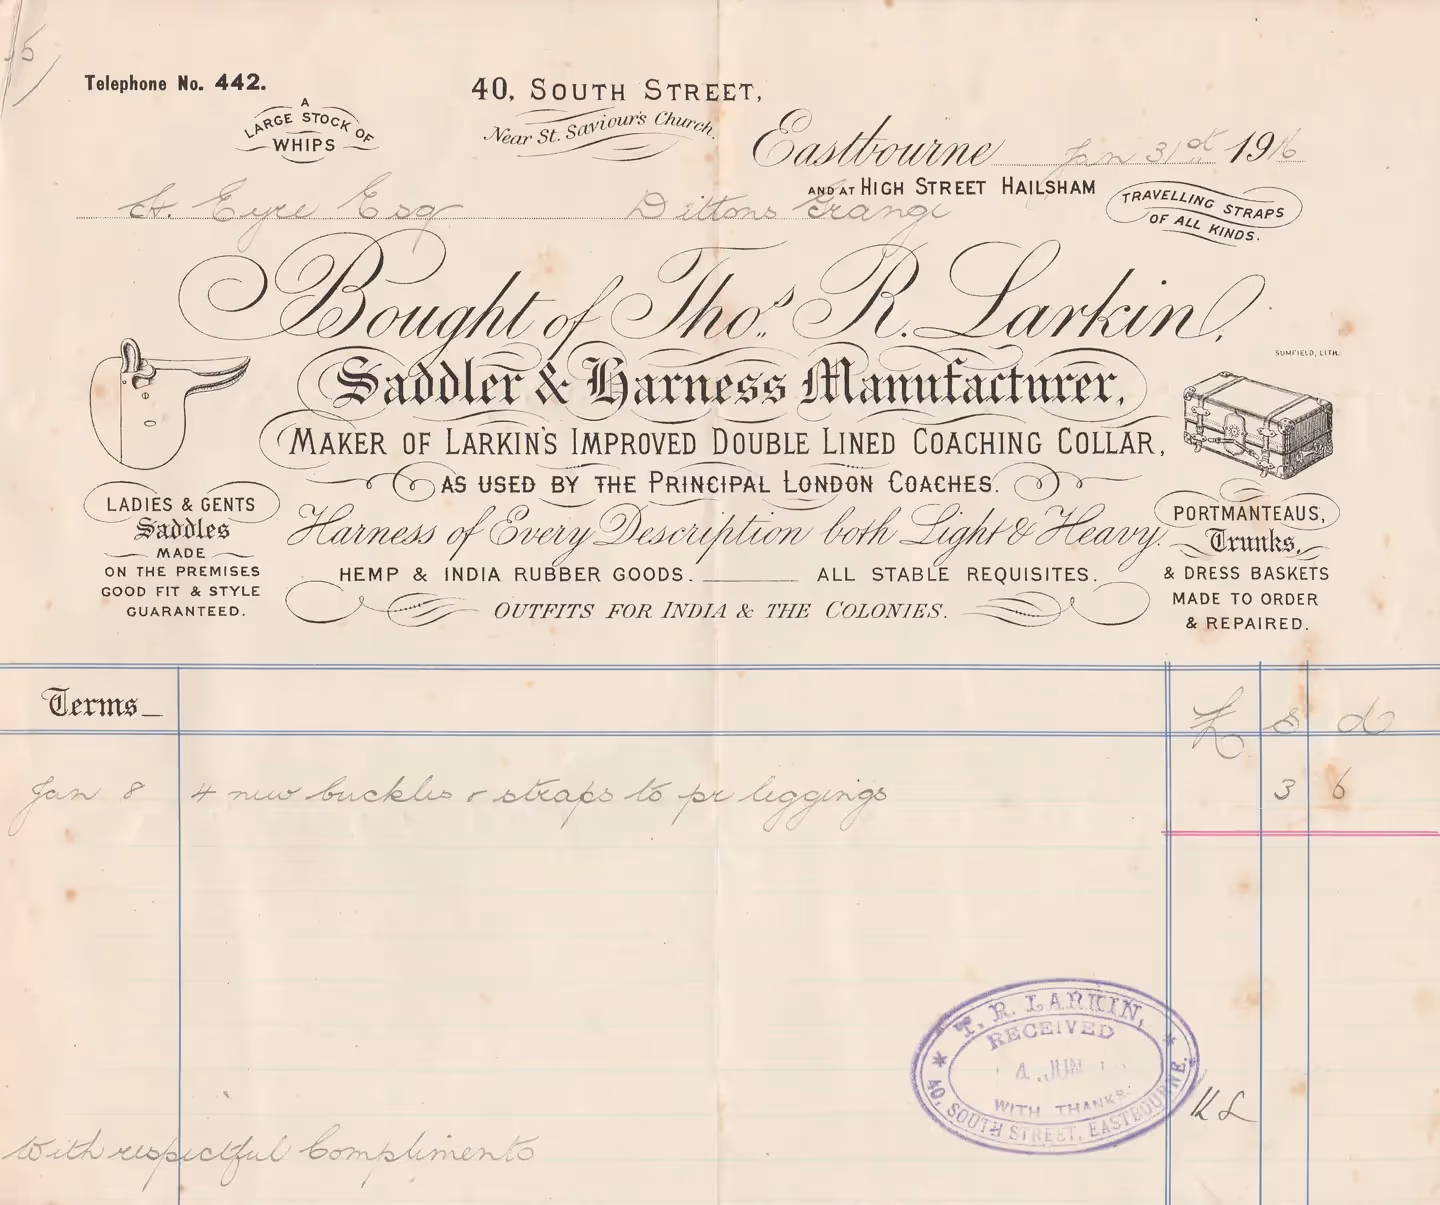 Telephone No. 442.
A
LARGE STOCK OF
WHIPS
40, SOUTH STREET,
Near St. Saviour's Church.
Eastbourne Jan 31st 1916
AND AT HIGH STREET HAILSHAM
TRAVELLING STRAPS
OF ALL KINDS.
Eyre Esq Dittons Grange
Bought of Thos. R. Larkin,
SUMFIELD, LITH.
Saddler & Harness Manufacturer,
MAKER OF LARKIN'S IMPROVED DOUBLE LINED COACHING COLLAR,
AS USED BY THE PRINCIPAL LONDON COACHES.
Harness of Every Description both Light & Heavy.
HEMP & INDIA RUBBER GOODS. ALL STABLE REQUISITES.
OUTFITS FOR INDIA & THE COLONIES.
LADIES & GENTS
Saddles
MADE
ON THE PREMISES
GOOD FIT & STYLE
GUARANTEED.
PORTMANTEAUS,
Trunks,
& DRESS BASKETS
MADE TO ORDER
& REPAIRED.
Terms
£ s d
Jan 8 4 new buckles & straps to pr leggings 3 6
T. R. LARKIN,
RECEIVED
4 JUN
WITH THANKS
40, SOUTH STREET, EASTBOURNE.
With respectful Compliments